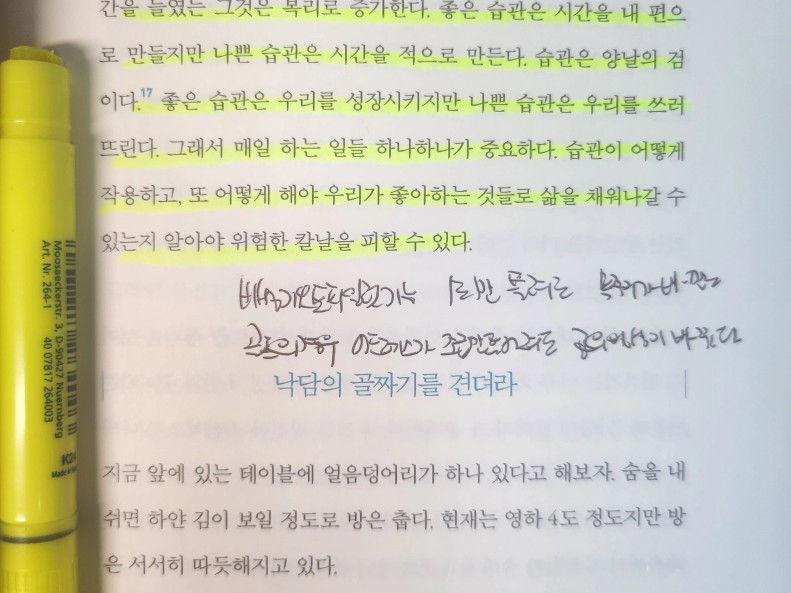 간을 들였든 그것은 복리로 증가한다. 좋은 습관은 시간을 내 편으
로 만들지만 나쁜 습관은 시간을 적으로 만든다. 습관은 양날의 검
이다.17 좋은 습관은 우리를 성장시키지만 나쁜 습관은 우리를 쓰러
뜨린다. 그래서 매일 하는 일들 하나하나가 중요하다. 습관이 어떻게
작용하고, 또 어떻게 해야 우리가 좋아하는 것들로 삶을 채워나갈 수
있는지 알아야 위험한 칼날을 피할 수 있다.
1도만 틀려도
낙담의 골짜기를 견뎌라
지금 앞에 있는 테이블에 얼음덩어리가 하나 있다고 해보자. 숨을 내
쉬면 하얀 김이 보일 정도로 방은 춥다. 현재는 영하 4도 정도지만 방
은 서서히 따듯해지고 있다.
Moosaeckerstr. 3, D-90427 Nuernberg
Art. Nr. 264-1
40 07817 264003